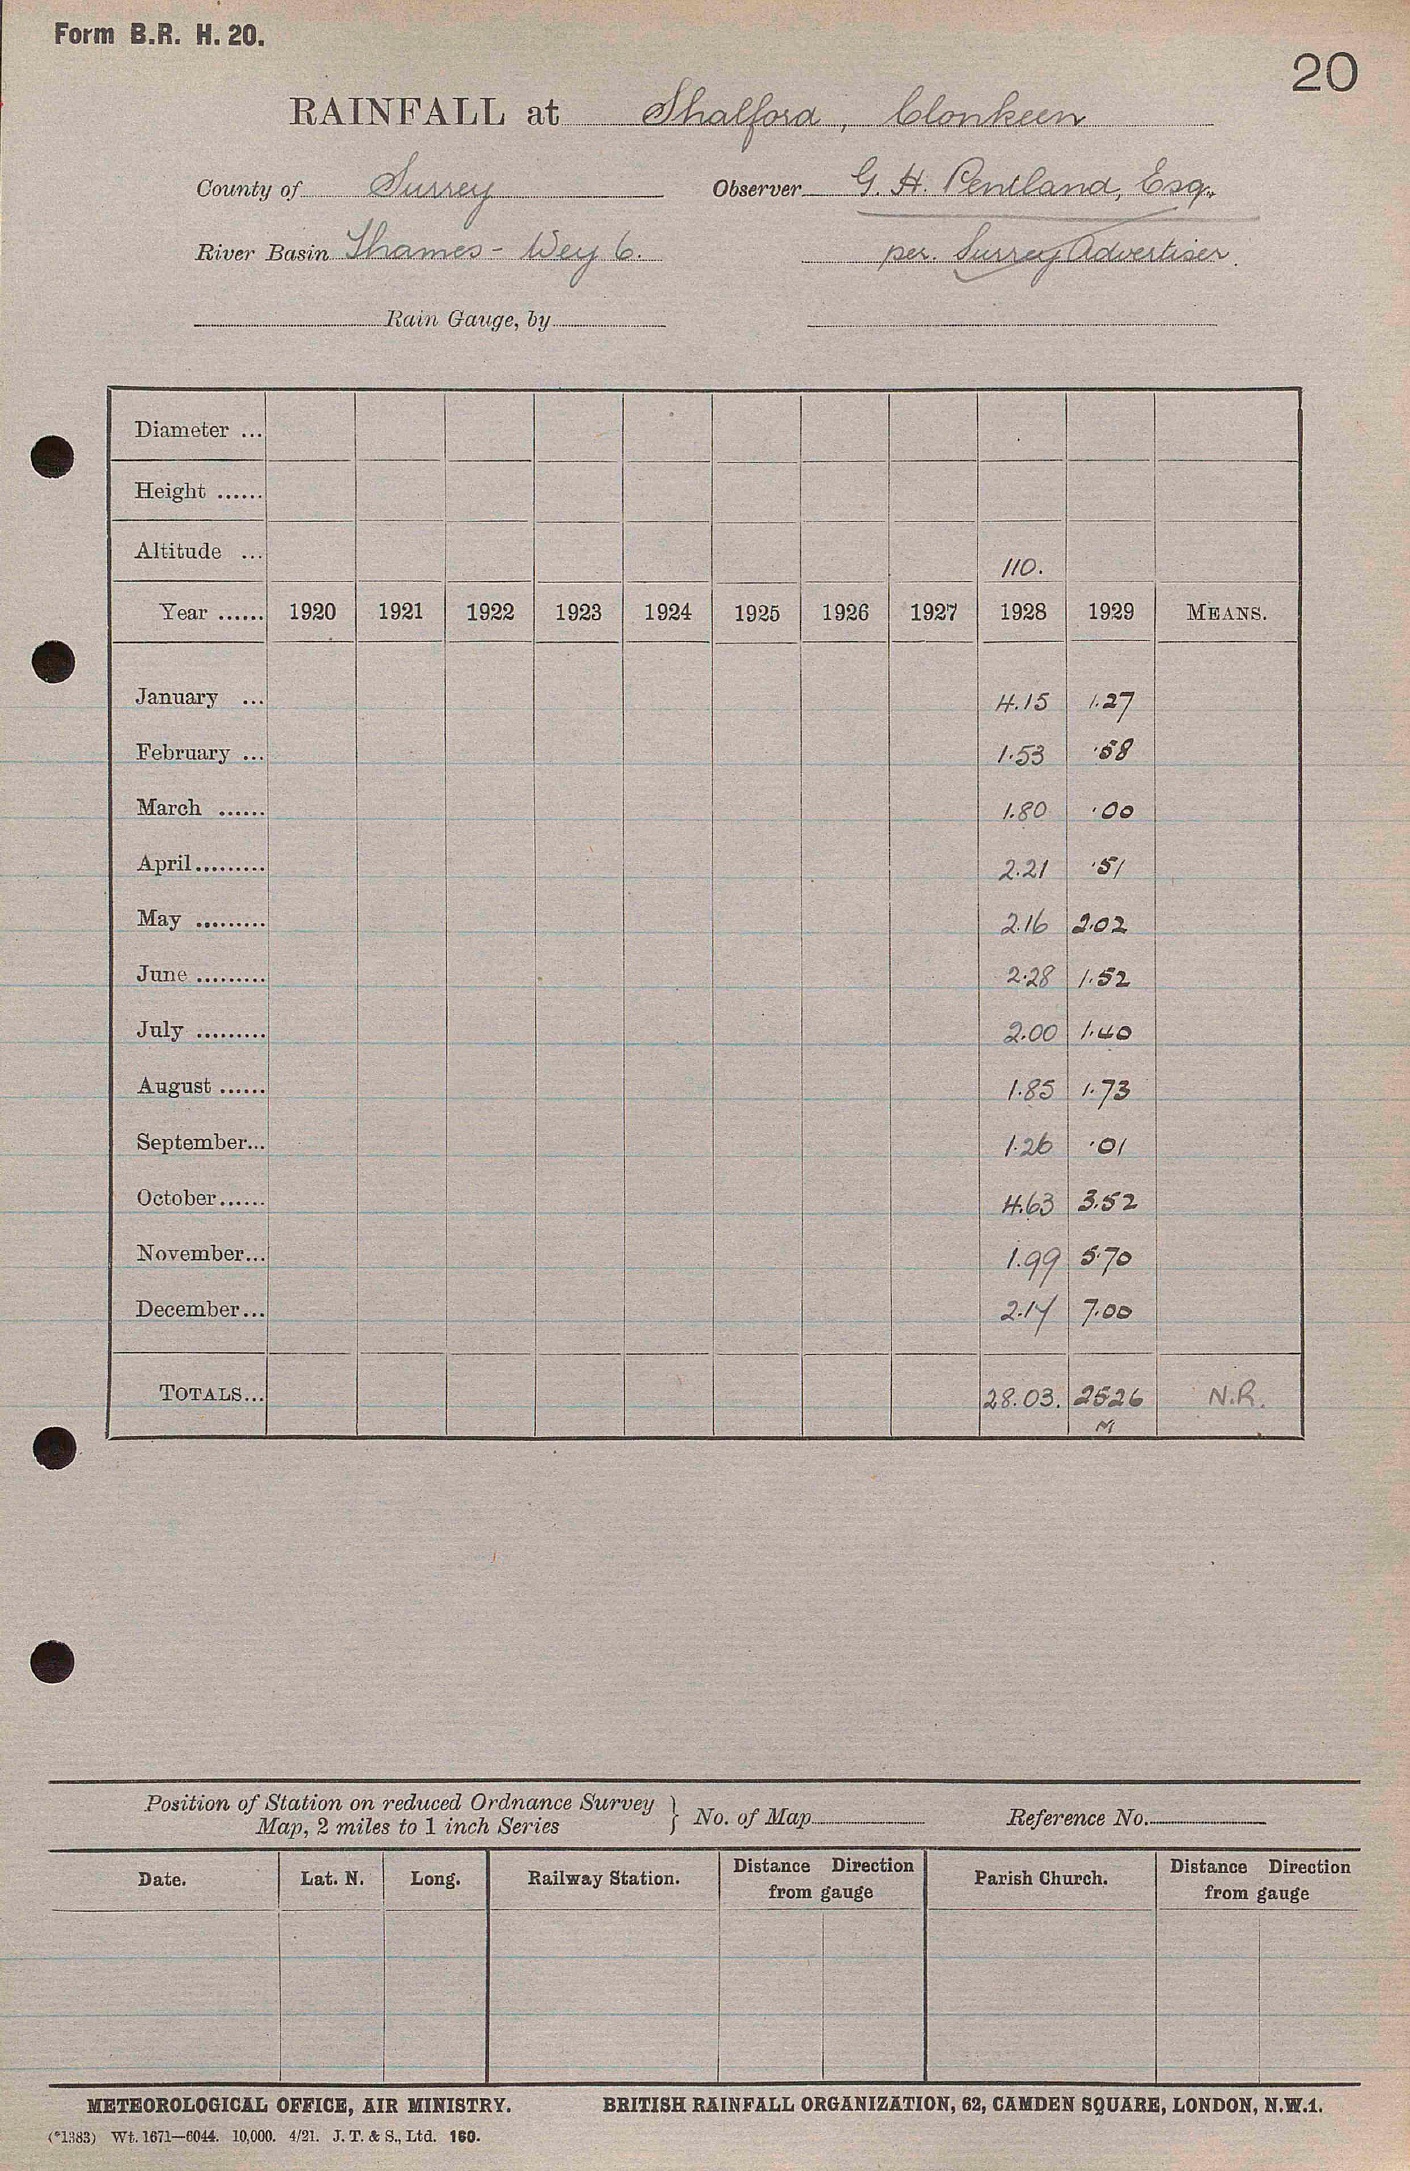 Form B.R. H. 20.
20
RAINFALL at Shalford, Clonkeen
County of Surrey Observer G. H. Pentland, Esq.
River Basin Thames - Wey 6. per. Surrey Advertiser.
Rain Gauge, by
Diameter ...
Height ......
Altitude ... 110.
Year ...... 1920 1921 1922 1923 1924 1925 1926 1927 1928 1929 MEANS.
January ... 4.15 1.27
February ... 1.53 .58
March ...... 1.80 .00
April......... 2.21 .51
May ......... 2.16 2.02
June ......... 2.28 1.52
July ......... 2.00 1.40
August ...... 1.85 1.73
September... 1.26 .01
October...... 4.63 3.52
November... 1.99 5.70
December... 2.17 7.00
TOTALS... 28.03. 25.26 N.R.
M
Position of Station on reduced Ordnance Survey
Map, 2 miles to 1 inch Series } No. of Map Reference No.
Date. Lat. N. Long. Railway Station. Distance Direction from gauge Parish Church. Distance Direction from gauge
METEOROLOGICAL OFFICE, AIR MINISTRY. BRITISH RAINFALL ORGANIZATION, 62, CAMDEN SQUARE, LONDON, N.W.1.
(*1383) Wt. 1671—6044. 10,000. 4/21. J. T. & S., Ltd. 160.